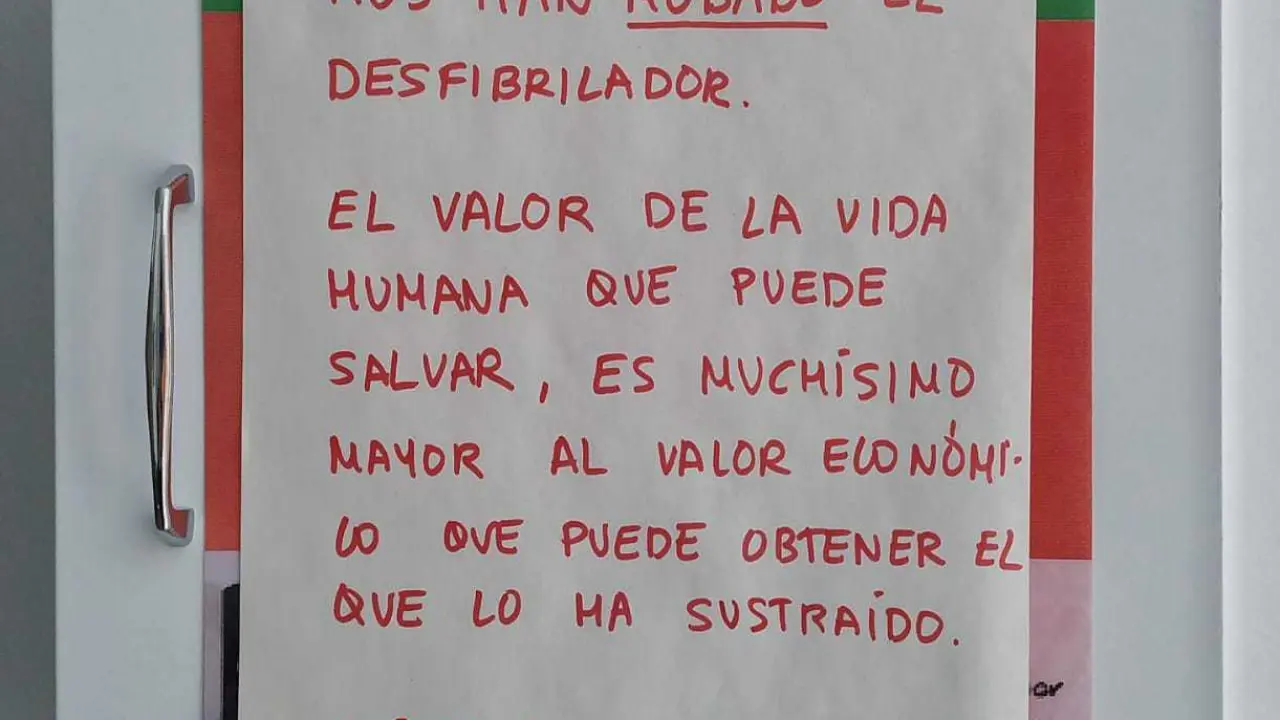 NOS HAN ROBADO EL
DESFIBRILADOR.
EL VALOR DE LA VIDA
HUMANA QUE PUEDE
SALVAR, ES MUCHÍSIMO
MAYOR AL VALOR ECONÓMI-
CO QUE PUEDE OBTENER EL
QUE LO HA SUSTRAÍDO.